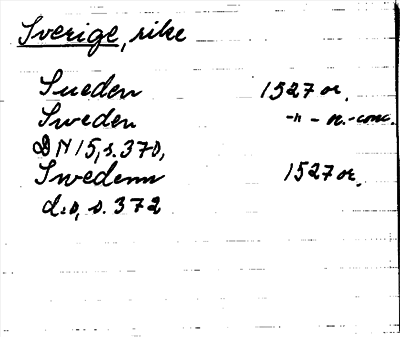 Sverige, rike
Sueden 1527 or.
Sweden -"- or.-conc.
DN 15, s. 370,
Swedenn 1527 or.
d:o, s. 372